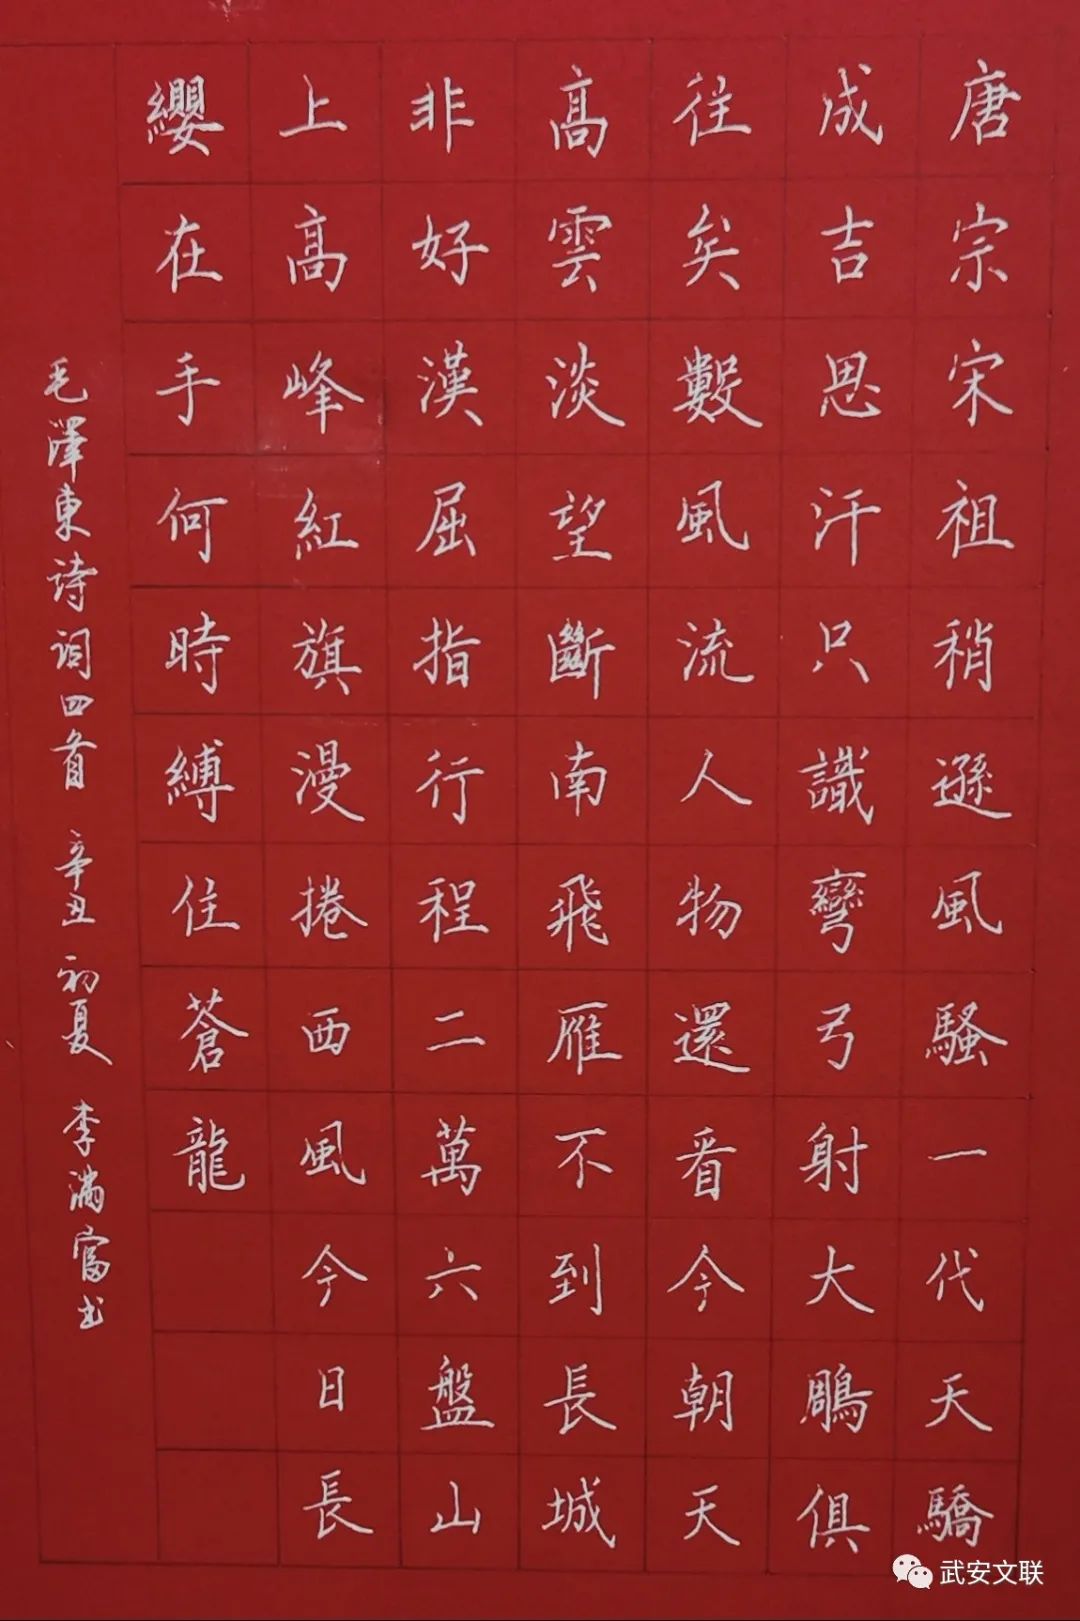 唐宗宋祖稍遜風騷一代天驕
成吉思汗只識彎弓射大鵰俱
往矣數風流人物還看今朝天
高雲淡望斷南飛雁不到長城
非好漢屈指行程二萬六盤山
上高峰紅旗漫捲西風今日長
纓在手何時縛住蒼龍
毛澤東詩詞四首 辛丑初夏 李滿富书
武安文联